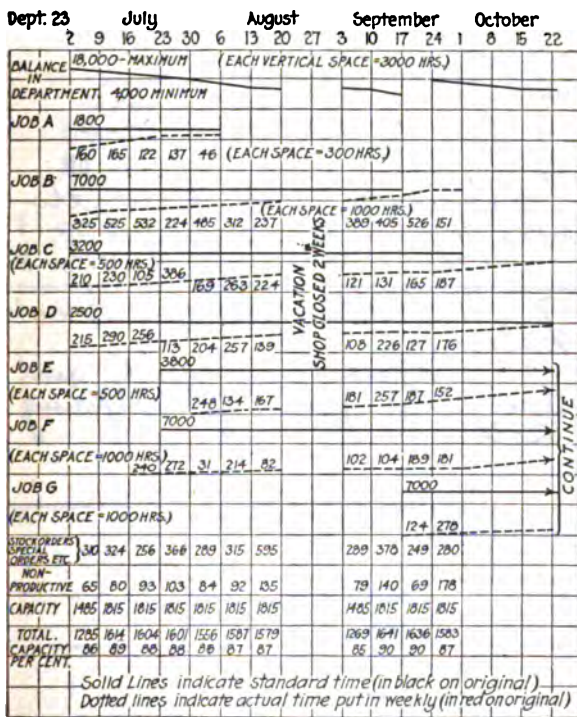 Dept. 23 July August September October
2 9 16 23 30 6 13 20 27 3 10 17 24 1 8 15 22
BALANCE IN DEPARTMENT. 18,000-MAXIMUM (EACH VERTICAL SPACE = 3000 HRS.)
4,000 MINIMUM
JOB A 1800
160 165 122 137 46 (EACH SPACE = 300 HRS.)
JOB B 7000
(EACH SPACE = 1000 HRS.)
325 525 532 224 485 312 237 389 405 526 151
JOB C 3200
(EACH SPACE = 500 HRS.)
210 230 105 386 169 263 224 121 131 165 187
VACATION
SHOP CLOSED 2 WEEKS
JOB D 2500
215 290 256 113 204 257 189 108 226 127 176
JOB E 3800
(EACH SPACE = 500 HRS.) 248 134 167 181 257 187 152
JOB F 7000
(EACH SPACE = 1000 HRS.) 240 272 31 214 82 102 104 189 181
JOB G 7000
(EACH SPACE = 1000 HRS.)
124 278
CONTINUE
STOCK ORDERS SPECIAL ORDERS. ETC. } 310 324 256 366 289 315 595 289 378 249 280
NON-PRODUCTIVE 65 80 93 103 84 92 135 79 140 69 178
CAPACITY 1485 1815 1815 1815 1815 1815 1815 1485 1815 1815 1815
TOTAL. 1285 1614 1604 1601 1556 1587 1579 1269 1641 1636 1583
CAPACITY PER CENT. 86 89 88 88 86 87 87 85 90 90 87
Solid Lines indicate standard time (in black on original)
Dotted lines indicate actual time put in weekly (in red on original)